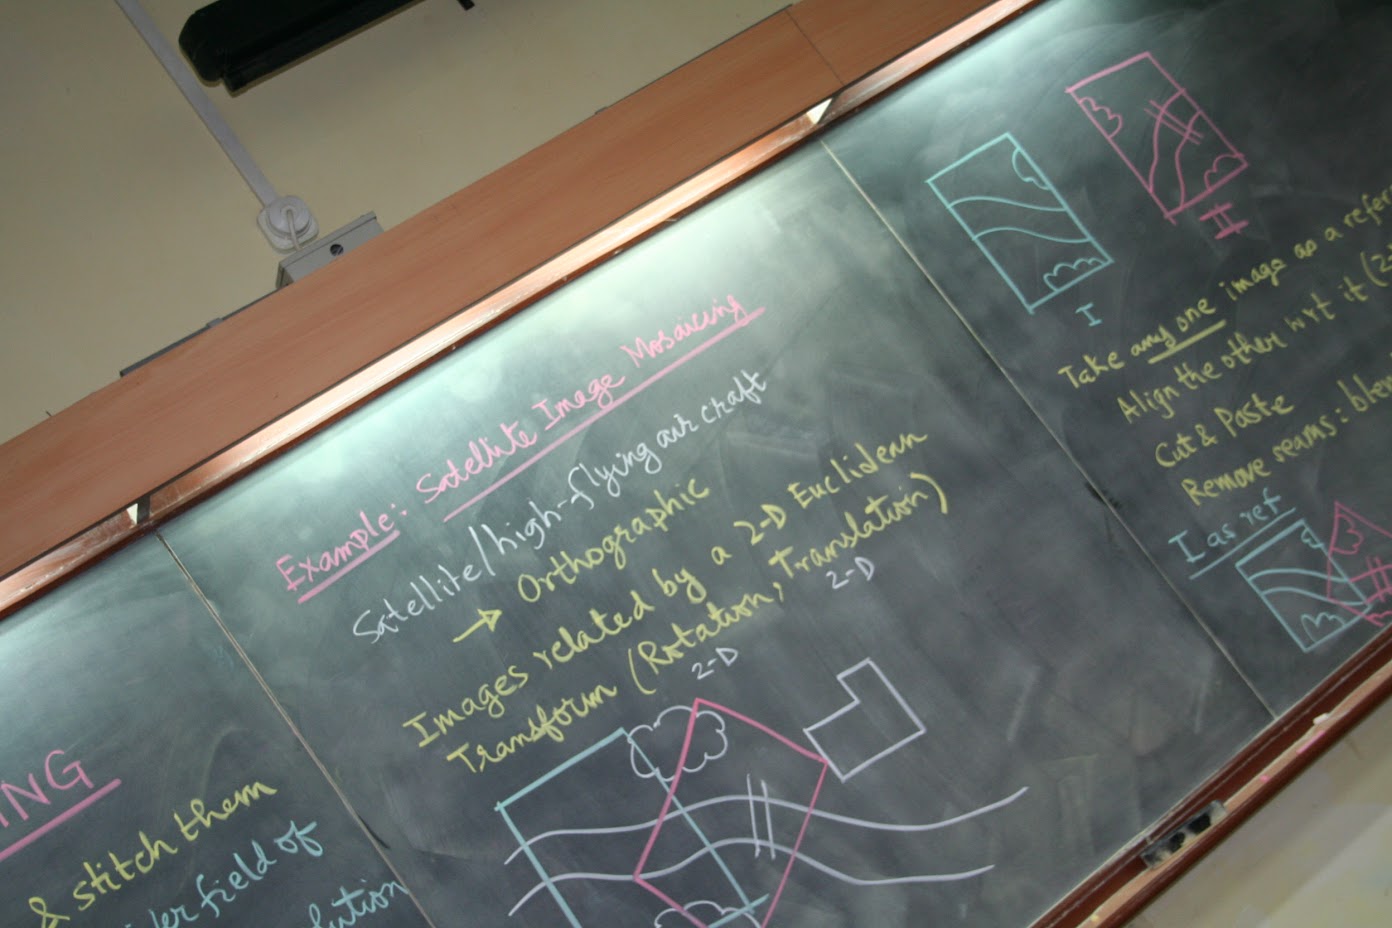 ING
& stitch them
der field of
lution
Example: Satellite Image Mosaicing
Satellite/high-flying air craft
→ Orthographic
Images related by a 2-D Euclidean
Transform (Rotation, Translation)
2-D 2-D
I
II
Take any one image as a refer
Align the other wrt it (2-
Cut & Paste
Remove seams: blen
I as ref